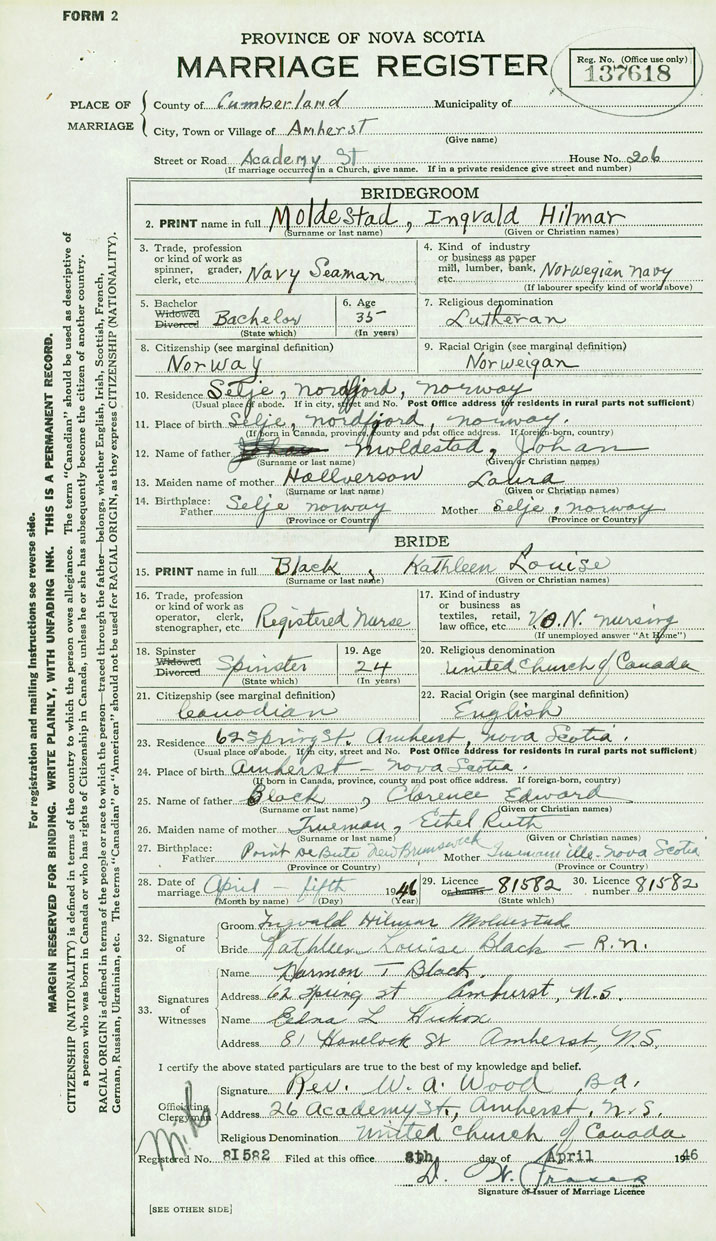 FORM 2
PROVINCE OF NOVA SCOTIA
MARRIAGE REGISTER
Reg. No. (Office use only)
137618
PLACE OF MARRIAGE
County of Cumberland Municipality of
City, Town or Village of Amherst
(Give name)
Street or Road Academy St House No. 206
(If marriage occurred in a Church, give name. If in a private residence give street and number)
BRIDEGROOM
2. PRINT name in full Moldestad, Ingvald Hilmar
(Surname or last name) (Given or Christian names)
3. Trade, profession or kind of work as spinner, grader, clerk, etc. Navy Seaman
4. Kind of industry or business as paper mill, lumber, bank, etc. Norwegian navy
(If labourer specify kind of work above)
5. Bachelor Widowed Divorced Bachelor
(State which)
6. Age 35
(In years)
7. Religious denomination
Lutheran
8. Citizenship (see marginal definition)
Norway
9. Racial Origin (see marginal definition)
Norweigan
10. Residence Selje, nordfjord, norway
(Usual place of abode. If in city, street and No. Post Office address for residents in rural parts not sufficient)
11. Place of birth Selje, nordfjord, norway.
(If born in Canada, province, county and post office address. If foreign-born, country)
12. Name of father Moldestad, Johan
(Surname or last name) (Given or Christian names)
13. Maiden name of mother Hallverson Laura
(Surname or last name) (Given or Christian names)
14. Birthplace: Father Selje norway Mother Selje, norway
(Province or Country) (Province or Country)
BRIDE
15. PRINT name in full Black, Kathleen Louise
(Surname or last name) (Given or Christian names)
16. Trade, profession or kind of work as operator, clerk, stenographer, etc. Registered Nurse
17. Kind of industry or business as textiles, retail, law office, etc. V.O.N. nursing
(If unemployed answer "At Home")
18. Spinster Widowed Divorced Spinster
(State which)
19. Age 24
(In years)
20. Religious denomination
United Church of Canada
21. Citizenship (see marginal definition)
Canadian
22. Racial Origin (see marginal definition)
English
23. Residence 62 Spring St. Amherst, nova Scotia.
(Usual place of abode. If in city, street and No. Post Office address for residents in rural parts not sufficient)
24. Place of birth Amherst - nova Scotia.
(If born in Canada, province, county and post office address. If foreign-born, country)
25. Name of father Black, Clarence Edward
(Surname or last name) (Given or Christian names)
26. Maiden name of mother Trueman, Ethel Ruth
(Surname or last name) (Given or Christian names)
27. Birthplace: Father Point De Bute New Brunswick Mother Nova Scotia
(Province or Country) (Province or Country)
28. Date of marriage April - fifth 1946
(Month by name) (Day) (Year)
29. Licence or banns 81582
(State which)
30. Licence number 81582
32. Signature of
Groom Ingvald Hilmar Moldestad
Bride Kathleen Louise Black - R.n.
33. Signatures of Witnesses
Name Harmon T Black.
Address 62 Spring St Amhurst, N.S.
Name Edna L Hickox
Address 81 Havelock St Amherst, N.S.
I certify the above stated particulars are true to the best of my knowledge and belief.
Officiating Clergyman
Signature Rev. W. A. Wood, B.A.
Address 26 Academy St., Amherst, N.S.
Religious Denomination United Church of Canada
Registered No. 81582 Filed at this office 8th day of April 1946
D. W. Fraser
Signature of Issuer of Marriage Licence
[SEE OTHER SIDE]
For registration and mailing instructions see reverse side.
MARGIN RESERVED FOR BINDING. WRITE PLAINLY, WITH UNFADING INK. THIS IS A PERMANENT RECORD.
CITIZENSHIP (NATIONALITY) is defined in terms of the country to which the person owes allegiance. The term "Canadian" should be used as descriptive of
a person who was born in Canada or who has rights of Citizenship in Canada, unless he or she has subsequently become the citizen of another country.
RACIAL ORIGIN is defined in terms of the people or race to which the person—traced through the father—belongs, whether English, Irish, Scottish, French,
German, Russian, Ukrainian, etc. The terms "Canadian" or "American" should not be used for RACIAL ORIGIN, as they express CITIZENSHIP (NATIONALITY).